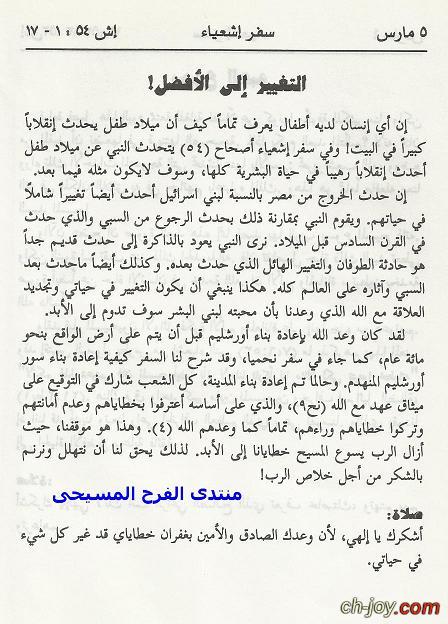 ٥ مارس سفر إشعياء إش ٥٤ : ١ - ١٧
التغيير إلى الأفضل!
إن أي إنسان لديه أطفال يعرف تماماً كيف أن ميلاد طفل يحدث إنقلاباً
كبيراً في البيت! وفي سفر إشعياء أصحاح (٥٤) يتحدث النبي عن ميلاد طفل
أحدث إنقلاباً رهيباً في حياة البشرية كلها، وسوف لايكون مثله فيما بعد.
إن حدث الخروج من مصر بالنسبة لبني اسرائيل أحدث أيضاً تغييراً شاملاً
في حياتهم. ويقوم النبي بمقارنة ذلك بحدث الرجوع من السبي والذي حدث
في القرن السادس قبل الميلاد. نرى النبي يعود بالذاكرة إلى حدث قديم جداً
هو حادثة الطوفان والتغيير الهائل الذي حدث بعده. وكذلك أيضاً ماحدث بعد
السبي وآثاره على العالم كله. هكذا ينبغي أن يكون التغيير في حياتي وتجديد
العلاقة مع الله الذي وعدنا بأن محبته لبني البشر سوف تدوم إلى الأبد.
لقد كان وعد الله بإعادة بناء أورشليم قبل أن يتم على أرض الواقع بنحو
مائة عام، كما جاء في سفر نحميا، وقد شرح لنا السفر كيفية إعادة بناء سور
أورشليم المنهدم. وحالما تم إعادة بناء المدينة، كل الشعب شارك في التوقيع على
ميثاق عهد مع الله (نح٩)، والذي على أساسه أعترفوا بخطاياهم وعدم أمانتهم
وتركوا خطاياهم وراءهم، تماماً كما وعدهم الله (٤). وهذا هو موقفنا، حيث
أزال الرب يسوع المسيح خطايانا إلى الأبد. لذلك يحق لنا أن نتهلل ونرنم
بالشكر من أجل خلاص الرب!
منتدى الفرح المسيحى
صلاة:
أشكرك يا إلهي، لأن وعدك الصادق والأمين بغفران خطاياي قد غير كل شيء
في حياتي.
ch-joy.com